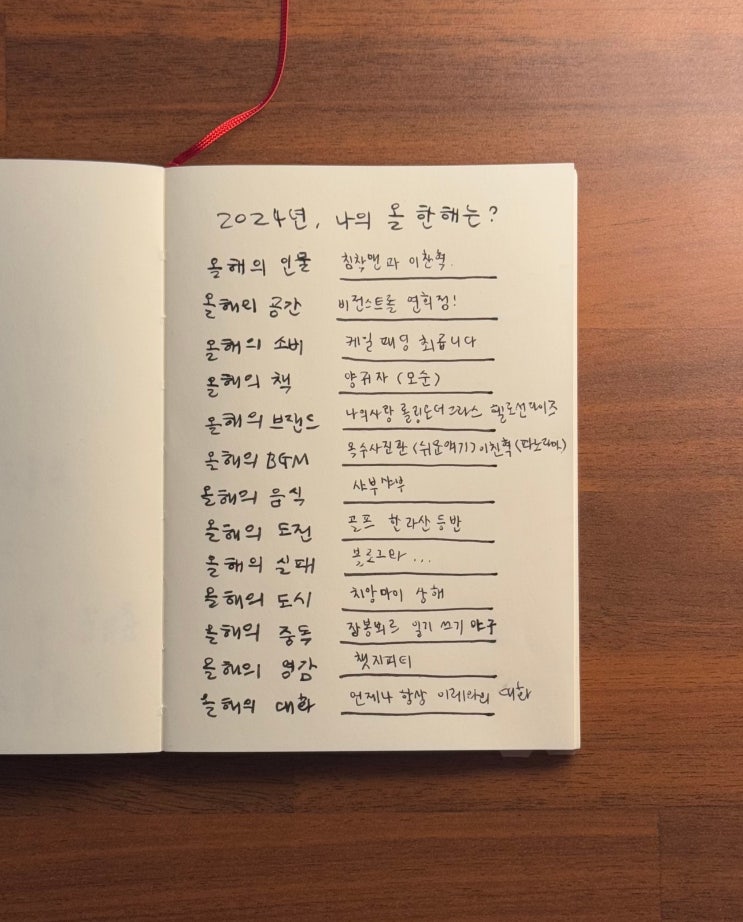 2024년, 나의 올 한해는?
올해의 인물 침착맨과 이찬혁.
올해의 공간 비전스트롤 연희점!
올해의 소비 케일 패딩 최곱니다
올해의 책 양귀자 (모순)
올해의 브랜드 나의사랑 롤링온더그라스 헬로선라이즈
올해의 BGM 옥수사진관 (쉬운얘기) 이찬혁 (파노라마)
올해의 음식 샤부샤부
올해의 도전 골프 한라산등반
올해의 실패 블로그와...
올해의 도시 치앙마이 상해
올해의 중독 잡봉뵈르 일기 쓰기 야구
올해의 영감 챗지피티
올해의 대화 언제나 항상 이레와의 대화